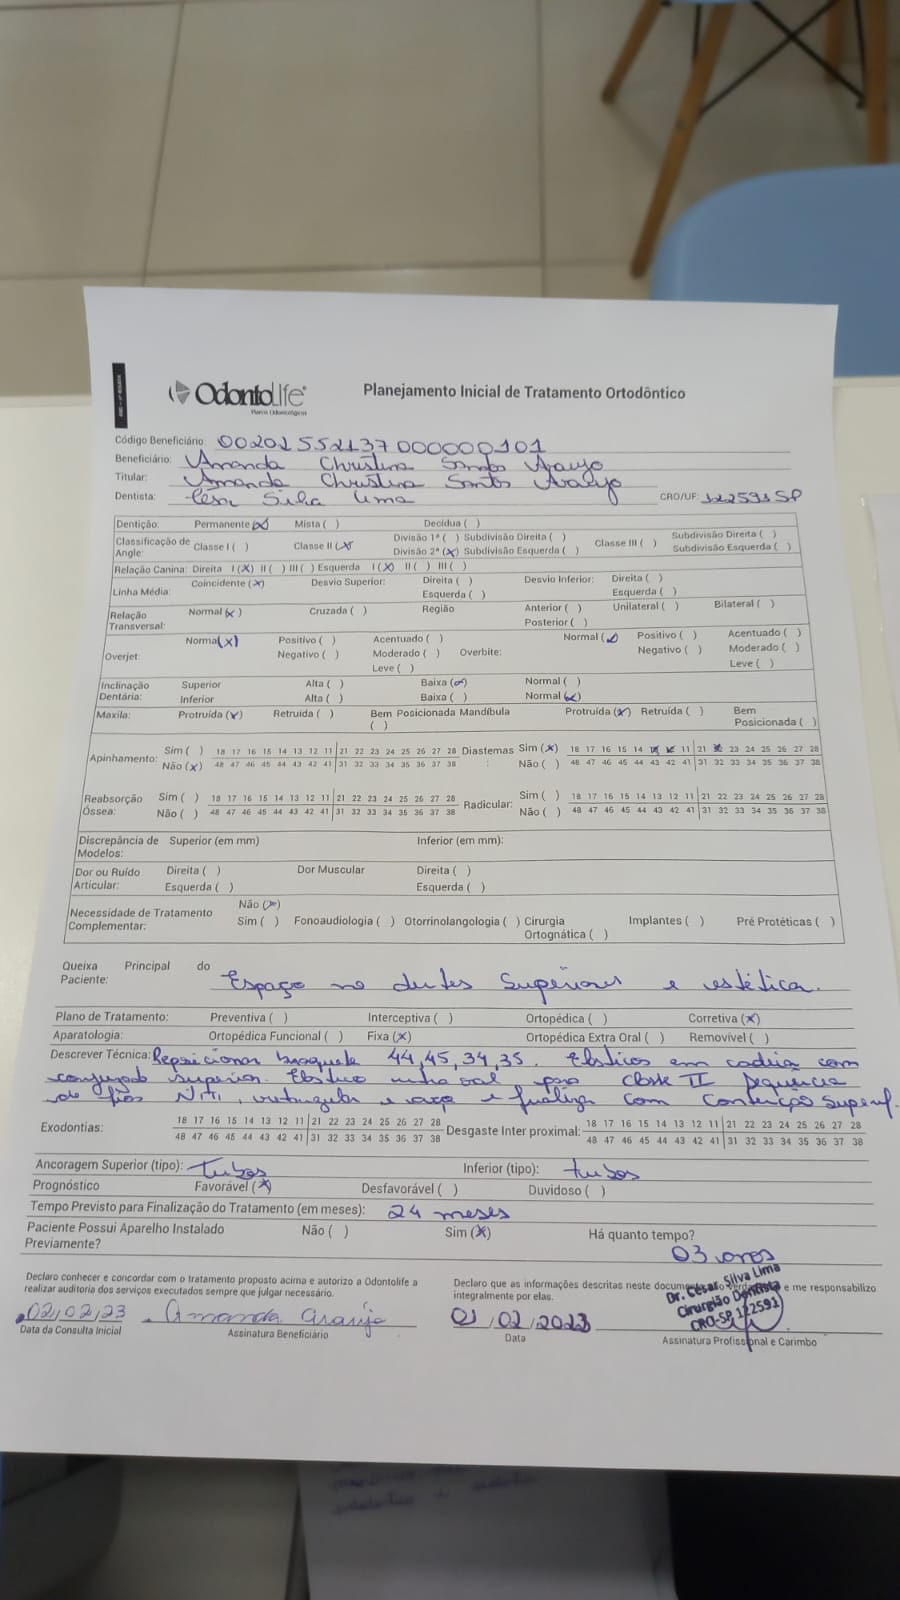 OdontoLife
Planos Odontológicos
Planejamento Inicial de Tratamento Ortodôntico
Código Beneficiário: 00202552137000000101
Beneficiário: Amanda Christina Santos Araujo
Titular: Amanda Christina Santos Araujo
Dentista: César Silva Lima CRO/UF: 122591 SP
Dentição: Permanente (x) Mista ( ) Decídua ( )
Classificação de Angle: Classe I ( ) Classe II (x) Divisão 1ª ( ) Subdivisão Direita ( ) Classe III ( ) Subdivisão Direita ( )
Divisão 2ª (x) Subdivisão Esquerda ( ) Subdivisão Esquerda ( )
Relação Canina: Direita I (x) II ( ) III ( ) Esquerda I (x) II ( ) III ( )
Linha Média: Coincidente (x) Desvio Superior: Direita ( ) Desvio Inferior: Direita ( )
Esquerda ( ) Esquerda ( )
Relação Transversal: Normal (x) Cruzada ( ) Região Anterior ( ) Unilateral ( ) Bilateral ( )
Posterior ( )
Overjet: Normal (x) Positivo ( ) Acentuado ( ) Overbite: Normal (x) Positivo ( ) Acentuado ( )
Negativo ( ) Moderado ( ) Negativo ( ) Moderado ( )
Leve ( ) Leve ( )
Inclinação Dentária: Superior Alta ( ) Baixa (x) Normal ( )
Inferior Alta ( ) Baixa ( ) Normal (x)
Maxila: Protruída (x) Retruida ( ) Bem Posicionada ( ) Mandíbula Protruída (x) Retruída ( ) Bem Posicionada ( )
Apinhamento: Sim ( ) 18 17 16 15 14 13 12 11 21 22 23 24 25 26 27 28 Diastemas: Sim (x) 18 17 16 15 14 11 21 23 24 25 26 27 28
Não (x) 48 47 46 45 44 43 42 41 31 32 33 34 35 36 37 38 Não ( ) 48 47 46 45 44 43 42 41 31 32 33 34 35 36 37 38
Reabsorção Óssea: Sim ( ) 18 17 16 15 14 13 12 11 21 22 23 24 25 26 27 28 Radicular: Sim ( ) 18 17 16 15 14 13 12 11 21 22 23 24 25 26 27 28
Não ( ) 48 47 46 45 44 43 42 41 31 32 33 34 35 36 37 38 Não ( ) 48 47 46 45 44 43 42 41 31 32 33 34 35 36 37 38
Discrepância de Modelos: Superior (em mm) Inferior (em mm):
Dor ou Ruído Articular: Direita ( ) Dor Muscular Direita ( )
Esquerda ( ) Esquerda ( )
Necessidade de Tratamento Complementar: Não (x)
Sim ( ) Fonoaudiologia ( ) Otorrinolangologia ( ) Cirurgia Ortognática ( ) Implantes ( ) Pré Protéticas ( )
Queixa Principal do Paciente: Espaço no dentes Superiores e estética.
Plano de Tratamento: Preventiva ( ) Interceptiva ( ) Ortopédica ( ) Corretiva (x)
Aparatologia: Ortopédica Funcional ( ) Fixa (x) Ortopédica Extra Oral ( ) Removível ( )
Descrever Técnica: Reposicionar braquete 44, 45, 34, 35. Elásticos em cadeia com
conjugado superior. Elástico intra oral para classe II sequencia
de fios NiTi, retangular e aço e finalizar com Contenção Superf.
Exodontias: 18 17 16 15 14 13 12 11 21 22 23 24 25 26 27 28 Desgaste Inter proximal: 18 17 16 15 14 13 12 11 21 22 23 24 25 26 27 28
48 47 46 45 44 43 42 41 31 32 33 34 35 36 37 38 48 47 46 45 44 43 42 41 31 32 33 34 35 36 37 38
Ancoragem Superior (tipo): tubos Inferior (tipo): tubos
Prognóstico Favorável (x) Desfavorável ( ) Duvidoso ( )
Tempo Previsto para Finalização do Tratamento (em meses): 24 meses
Paciente Possui Aparelho Instalado Previamente? Não ( ) Sim (x) Há quanto tempo?
03 anos
Declaro conhecer e concordar com o tratamento proposto acima e autorizo a Odontolife a
realizar auditoria dos serviços executados sempre que julgar necessário.
Declaro que as informações descritas neste documento e me responsabilizo
integralmente por elas.
Dr. César Silva Lima
Cirurgião Dentista
CRO-SP 122591
02/02/23 Amanda Araujo 01/02/2023
Data da Consulta Inicial Assinatura Beneficiário Data Assinatura Profissional e Carimbo